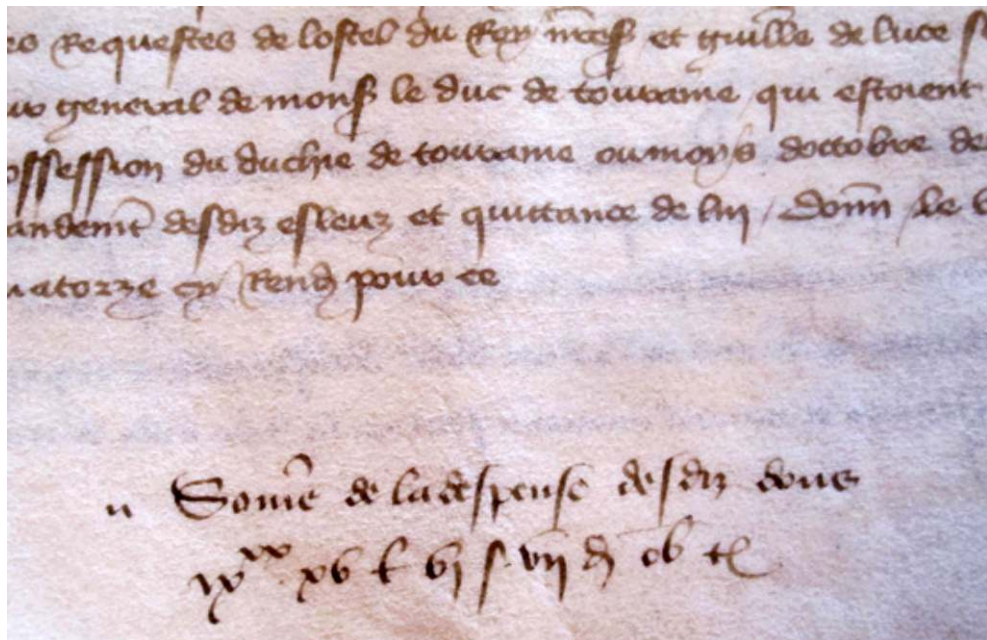 es Requestes de lostel du Roy nre sr et guille de luce se
ur general de mons le duc de touraine qui estoient
ossession du duchie de touraine ou moys doctobre de
andemt desdiz esleuz et quittance de lui / Donn le
uatorze cy Rend pour ce
Some de la despense desdiz dons
ix xx xv l vj s vij d ob t